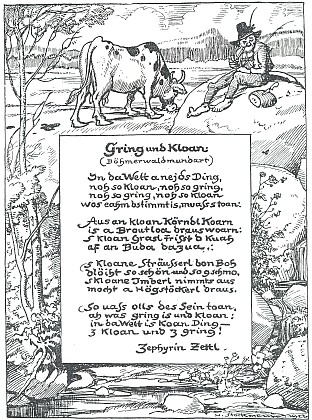 Gring und Kloan
(Böhmerwaldmundart)
In da Welt a nejds Ding,
noh so kloan, noh so gring,
noh so gring, noh so kloan
wos eahm bstimmt is, muass toan.
Aus an kloan Körndl Koarn
is a Broutloa draus woarn:
s kloan Grasl frisst d Kuah
af an Buda dazua,:
s kloane Sträusserl von Boh
blöiht so schön und so gschmo,
s kloane Imberl nimmts aus
mocht a Högstöckerl draus.
So vass olls des Sein toan,
ah was gring is und kloan;
in da Welt is koan Ding—
z kloan und z gring!
Zephyrin Zettl